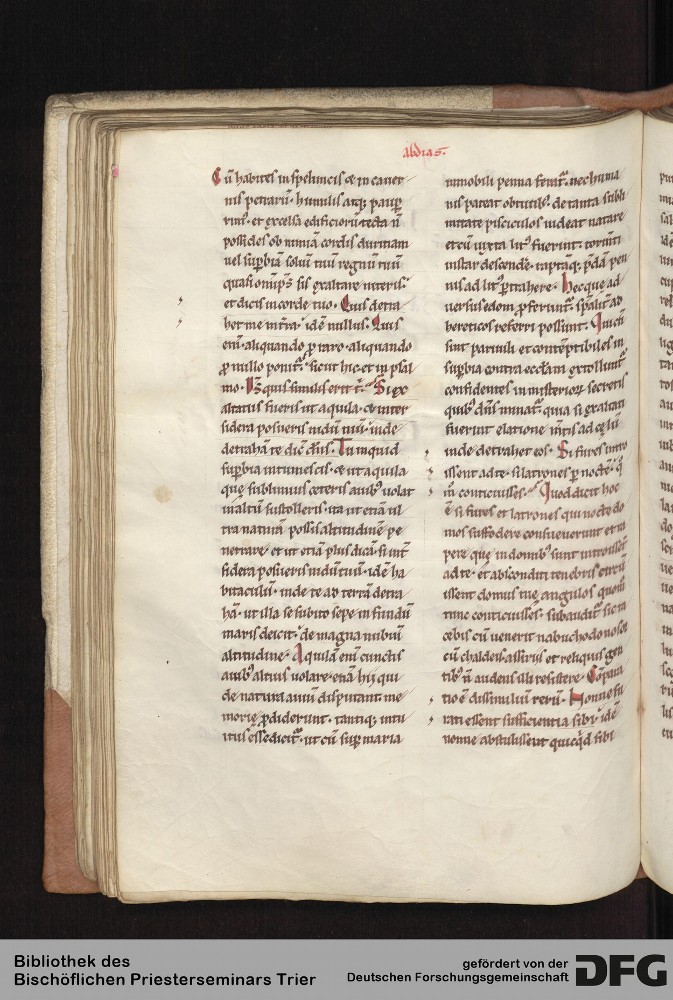 abdias.
Cū habites in speluncis et in caver
nis petrarū. humilis atq; paup
rim'. et excelsa edificiorū tecta n̄
possidos ob nimiā cordis duritiam
vel supbiā solitū tuū regnū tuū
quasi omīps sis exaltare iteris.
et dicis in corde tuo. Quis detra
het me in t̄ra. idē nullus. Quis
eni. aliquando p raro. aliquando
p nullo ponit̄. sicut hic. et in psal
mo. Dn̄s quis similis erit t'. Si ex
altatus fueris ut aquila. et inter
sidera posueris nidū tuū. inde
detrahā te dic̄ dn̄s. Tu inquid
supbia intumescis. et ut aquila
quę sublimius ceteris avib; volat
in altū sustolleris. ita ut etiā ul
tra naturā possis altitudinē pe
netrare. et ut etiā plus dicā. si int̄
sidera posueris nidū tuū. idē ha
bitaculū. inde te ad terrā detra
hā. ut illa se subito sepe in fundū
maris deicit. de magna nubiū
altitudine. Aquilā enī cunctis
avib; altius volare. etiā hii qui
de natura aviū disputant. me
morię pdiderunt. tantiq; intu
itus esse dicit̄. ut cū sup maria
inmobili penna ferat̄. nec huma
nis pateat obtutib;. de tanta subli
mitate pisciculos videat natare
et cū iuxta lit' fuerint. torm̄ti
instar descendē. raptāq; pdā pen
nis ad lit' ptrahere. Hec que ad
versus edom pferunt̄. spālit̄ ad
hereticos referri possunt. Qui cū
sint parvuli et contēptibiles in
supbia contra ecclām extollunt̄
confidentes in misteriorū secretis
quib; dn̄s minat̄. quia si exaltati
fuerint elatione m̄tis ad cęlū
inde detrahet eos. Si fures intro
issent ad te. si latrones p noctē. q'
m̄ conticuisses. Quod dicit hoc
ē. si fures et latrones qui nocte do
mos suffodere consueverunt et ra
pere quę in domib; sunt introissēt
ad te. et absconditi tenebris circū
issent domus tuę angulos quom̄
tunc conticuisses. subaudit̄. sic ta
cebis cū venerit nabuchodonosor
cū chaldeis. assiriis et reliquis gen
tib; n̄ audens illi resistere. Cōpara
tio ē dissimiliū rerū. Nonne fu
rati essent sufficientia sibi. idē
nonne abstulissent quicq̄d sibi
Bibliothek des
Bischöflichen Priesterseminars Trier
gefördert von der
Deutschen Forschungsgemeinschaft
DFG